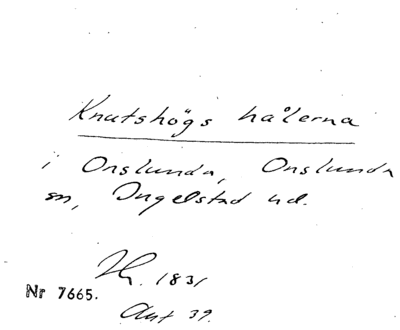 Knutshögs hålerna
i Onslunda, Onslunda
sn, Ingelstad hd.
1831
Nr 7665.
Akt 39.